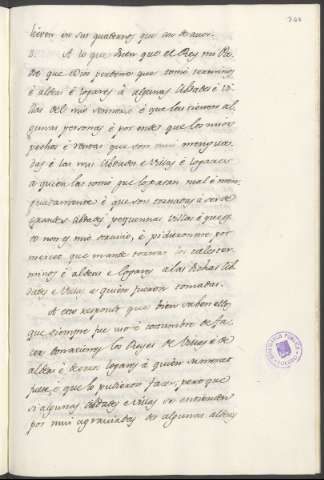 244
hicieron en sus quadernos que an de aver.
3. A lo que dicen que el Rey mi Pa-
dre que Dios perdone que tomó terminos
é aldeas é logares á algunas Cibdades é Vi-
llas del mio Sennorio é que las dieron al-
gunas personas é por ende que los mios
pechos é rentas que son muy mengua-
das é las mis Cibdades é Villas é logares
á quien las tomó que lo pasan mal é mén-
guadamente é que son tornadas á ser de
grandes Cibdades pequennas Villas é que es-
to non es mio servicio, é pidieronme por
merced que mande tornar los tales ter-
minos é aldeas e logares á las dichas Cib-
dades é Villas á quien fueron tomadas.
A esto respondo que bien saben ellos
que siempre fue uso é costumbre de fa-
cer donaciones los Reyes de Villas é de
aldeas é de otros logares á quién su merced
fuese é que lo pudieron facer, pero que
si algunas Cibdades é Villas se entienden
por muy agraviadas de algunas aldeas
BIBLIOTECA PUBLICA
TOLEDO